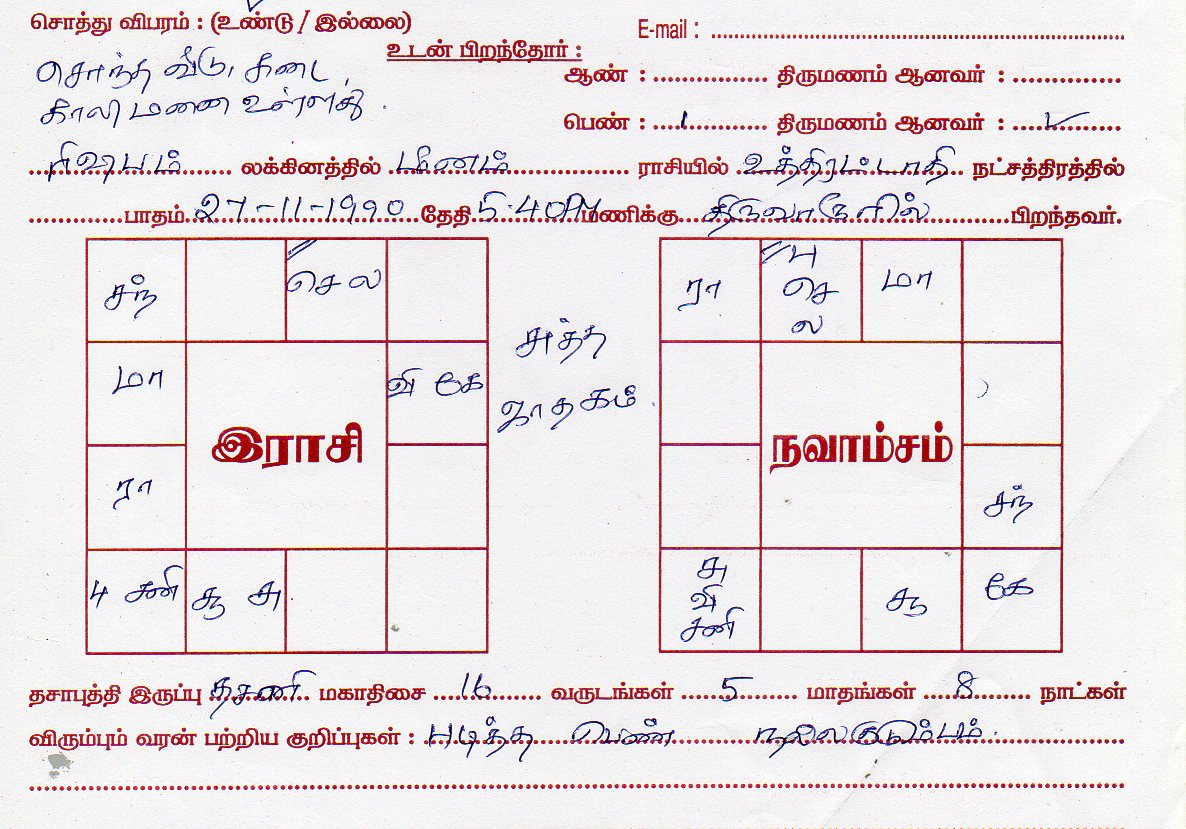 சொத்து விபரம் : (உண்டு / இல்லை) E-mail :
சொந்த வீடு, கடை,
உடன் பிறந்தோர் :
ஆண் : திருமணம் ஆனவர் :
காலி மனை உள்ளது.
பெண் : 1 திருமணம் ஆனவர் : ✓
ரிஷபம் லக்கினத்தில் மீனம் ராசியில் உத்திரட்டாதி நட்சத்திரத்தில்
பாதம் 27-11-1990 தேதி 5.40PM மணிக்கு திருவாரூரில் பிறந்தவர்.
சந் செவ ரா பு செவ மா
மா வி கே சுத்த ஜாதகம்
இராசி நவாம்சம்
ரா சந்
4 சனி சூ சு சு வி சனி சூ கே
தசாபுத்தி இருப்பு சனி மகாதிசை 16 வருடங்கள் 5 மாதங்கள் 8 நாட்கள்
விரும்பும் வரன் பற்றிய குறிப்புகள் : படித்த பெண் நல்லகுடும்பம்.